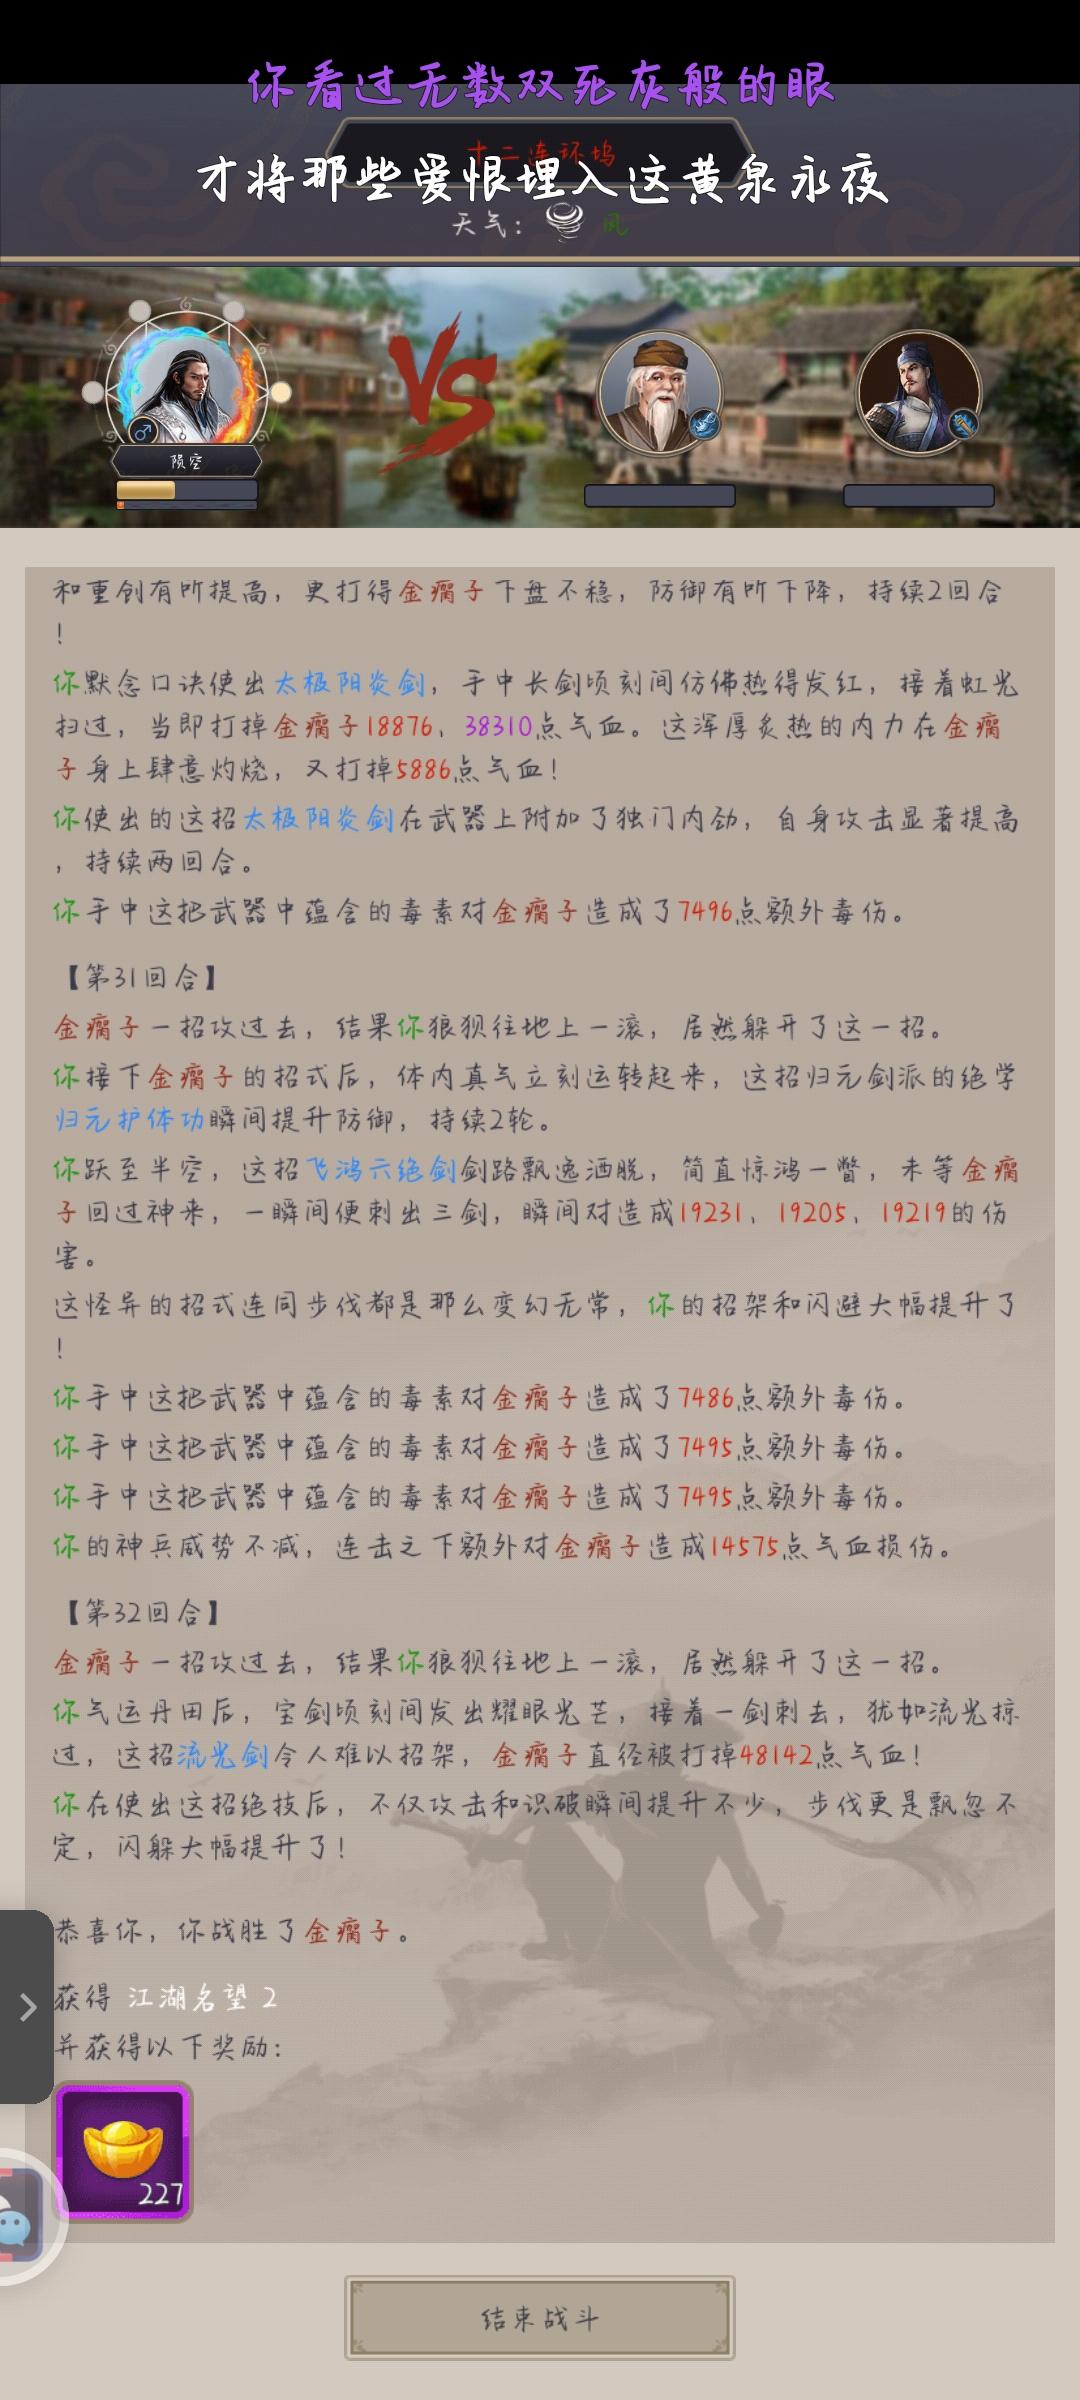 你看过无数双死灰般的眼
十二连环坞
才将那些爱恨埋入这黄泉永夜
天气： 风
VS
陨空
和重创有所提高，更打得金瘸子下盘不稳，防御有所下降，持续2回合
！
你默念口诀使出太极阳炎剑，手中长剑顷刻间仿佛热得发红，接着虹光
扫过，当即打掉金瘸子18876、38310点气血。这浑厚炙热的内力在金瘸
子身上肆意灼烧，又打掉5886点气血！
你使出的这招太极阳炎剑在武器上附加了独门内劲，自身攻击显著提高
，持续两回合。
你手中这把武器中蕴含的毒素对金瘸子造成了7496点额外毒伤。
【第31回合】
金瘸子一招攻过去，结果你狼狈往地上一滚，居然躲开了这一招。
你接下金瘸子的招式后，体内真气立刻运转起来，这招归元剑派的绝学
归元护体功瞬间提升防御，持续2轮。
你跃至半空，这招飞鸿六绝剑剑路飘逸洒脱，简直惊鸿一瞥，未等金瘸
子回过神来，一瞬间便刺出三剑，瞬间对造成19231、19205、19219的伤
害。
这怪异的招式连同步伐都是那么变幻无常，你的招架和闪避大幅提升了
！
你手中这把武器中蕴含的毒素对金瘸子造成了7486点额外毒伤。
你手中这把武器中蕴含的毒素对金瘸子造成了7495点额外毒伤。
你手中这把武器中蕴含的毒素对金瘸子造成了7495点额外毒伤。
你的神兵威势不减，连击之下额外对金瘸子造成14575点气血损伤。
【第32回合】
金瘸子一招攻过去，结果你狼狈往地上一滚，居然躲开了这一招。
你气运丹田后，宝剑顷刻间发出耀眼光芒，接着一剑刺去，犹如流光掠
过，这招流光剑令人难以招架，金瘸子直径被打掉48142点气血！
你在使出这招绝技后，不仅攻击和识破瞬间提升不少，步伐更是飘忽不
定，闪躲大幅提升了！
恭喜你，你战胜了金瘸子。
获得 江湖名望 2
并获得以下奖励：
227
结束战斗